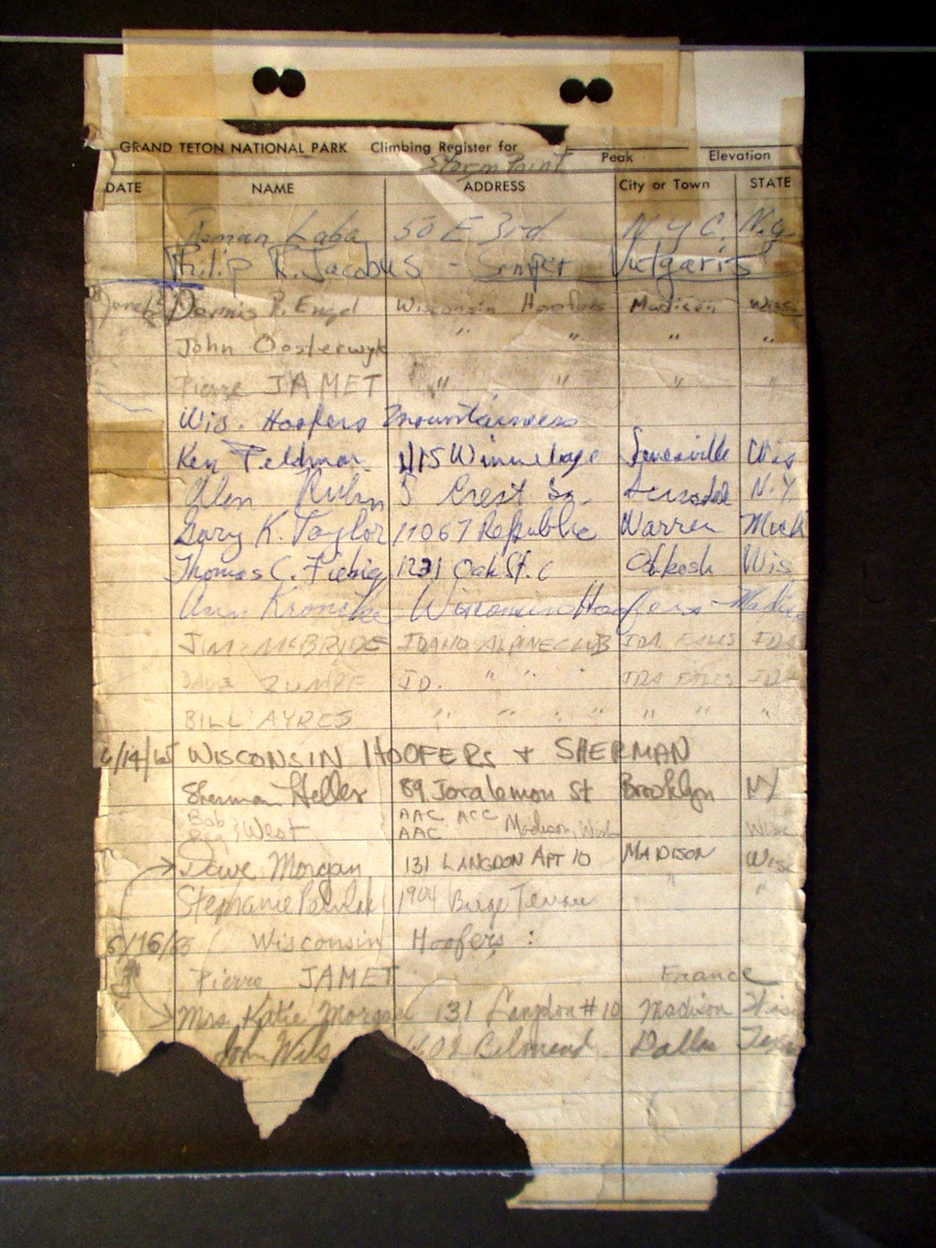 GRAND TETON NATIONAL PARK Climbing Register for Storm Point Peak Elevation
DATE NAME ADDRESS City or Town STATE
Roman Laba 50 E 3rd N Y C, N.y.
Philip R. Jacobus - Semper Vulgaris
Dennis P. Engel Wisconsin Hoofers Madison Wisc
John Oosterwyk " " "
Pierre JAMET " " " "
Wis. Hoofers Mountaineers
Ken Feldman 1115 Winnebago Janesville Wis
Alen Rubin 5 Crest Sq. N.Y.
Gary K. Taylor 11067 Republic Warren Mich
Thomas C. Fiebig 1231 Oak St. Oshkosh Wis
Ann Wisconsin Hoofers Madis
JIM McBRIDE IDAHO ALPINE CLUB IDA FALLS IDA
DAVE ID. " " " IDA FALLS IDA
BILL AYRES " " " " " " "
6/14/65 WISCONSIN HOOFERS + SHERMAN
Sherman Heller 89 Joralemon St Brooklyn NY
Bob AAC ACC
West AAC Madison, Wisc
Dave Morgan 131 LANGDON APT 10 MADISON Wisc
Stephanie 1904 " "
Wisconsin Hoofers :
Pierre JAMET France
Mrs Katie Morgan 131 Langdon #10 Madison Wisc
John Wils Belmead Dallas Texas